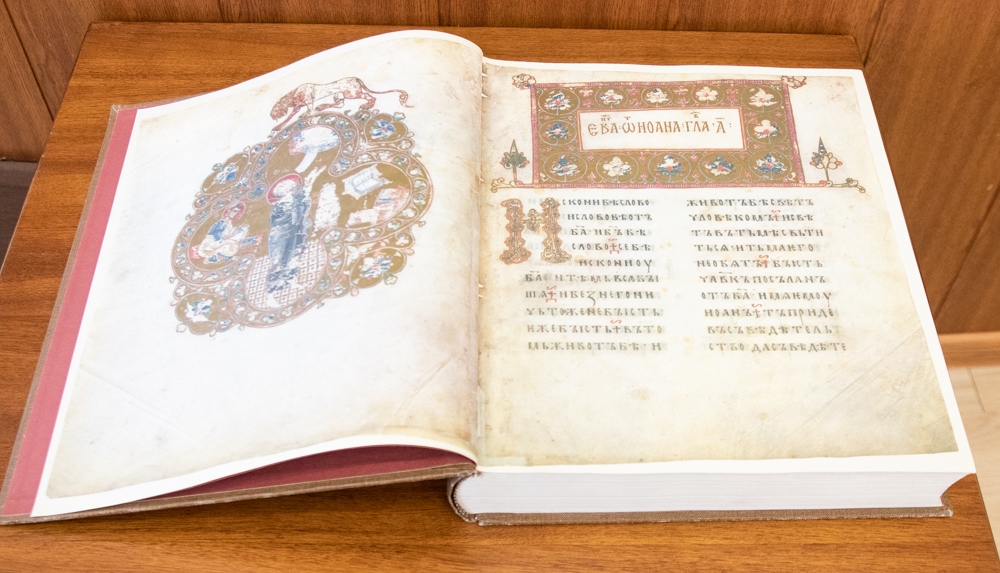 ЕВА·ѾИОАНА·ГЛА·А҃:
ИСКОНИБѢСЛОВО
ИСЛОВОБѢОТЪ
БА҃·ИБЪ҃БѢ
СЛОВО·СЕБѢ
ИСКОНИОУ
БА҃·ИТѢМЬВЬСѦБЫ
ШѦ·ИБЕЗНЕГОНИ
ЧЬТОЖЕНЕБЫСТЬ
ИЖЕБЪІСТЬ·ВЪТО
МЬЖИВОТЪБѢ·И
ЖИВОТЪБѢСВѢТЪ
ЧЛОВѢКОМЪ·ИСВѢ
ТЪВЪТЬМѢСВЬТИ
ТЬСѦ·ИТЬМАѤГО
НЕОБѦТЪ·БЪІСТЬ
ЧЛВ҃КЪПОСЪЛАНЪ
ОТЪБА҃·ИМѦѤМОУ
ИОАНЪ·ТЪПРИДЕ
ВЪСЪВѢДѢТЕЛЬ
СТВО·ДАСЪВѢДѢТЕ